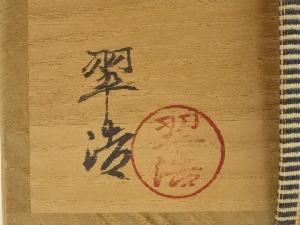 翠浩
翠浩